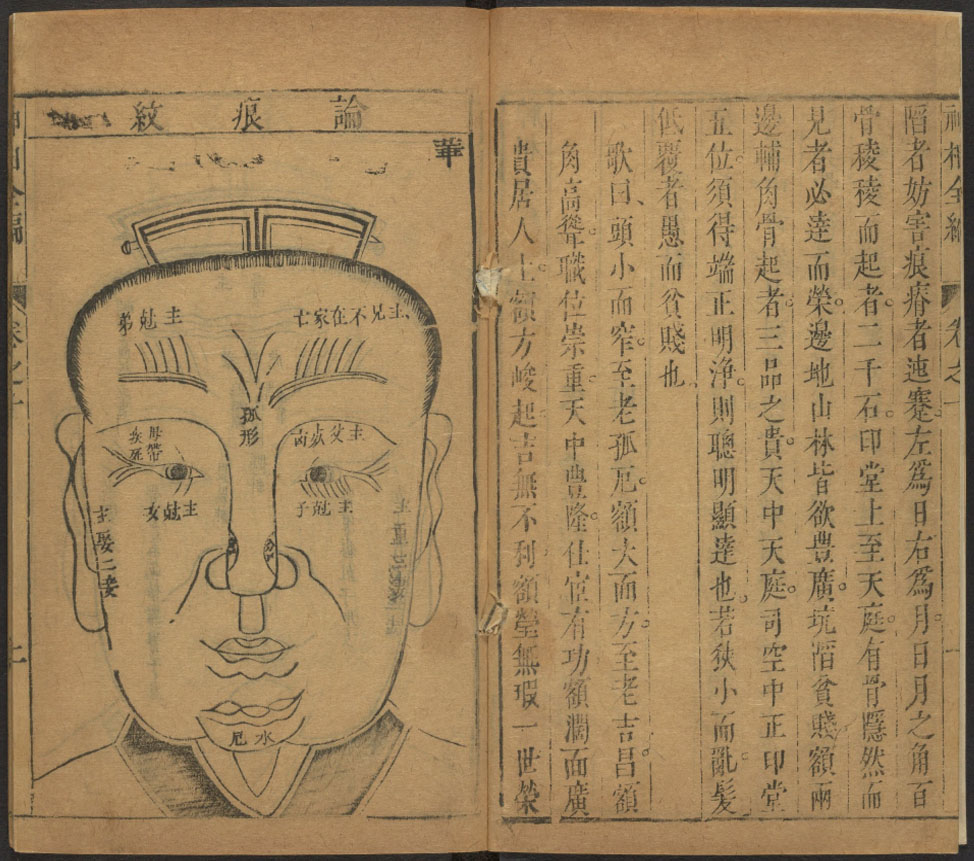 神相全編
卷之
陷者妨害痕瘠者迍蹇左爲日右爲月日月之角百
骨稜稜而起者二千石印堂上至天庭有骨隱然而
見者必達而榮邊地山林皆欲豊廣坑陷貧賤額兩
邊輔角骨起者三品之貴天中天庭司空中正印堂
五位須得端正明淨則聰明顯達也若狹小而亂髮
低覆者愚而貧賤也
歌曰頭小而窄至老孤厄額大而方至老吉昌額
角高聳職位崇重天中豊隆仕宦有功額濶面廣
貴居人上額方峻起吉無不利額瑩無瑕一世榮
華
論痕紋
主兄不在家亡
主尅弟
孤形
主父
主尅子
主尅女
主娶二妻
水厄